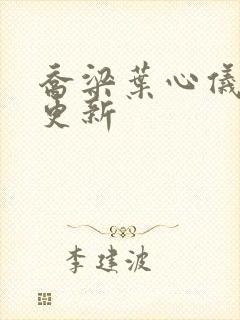 乔梁葉心儀
更新
李建波